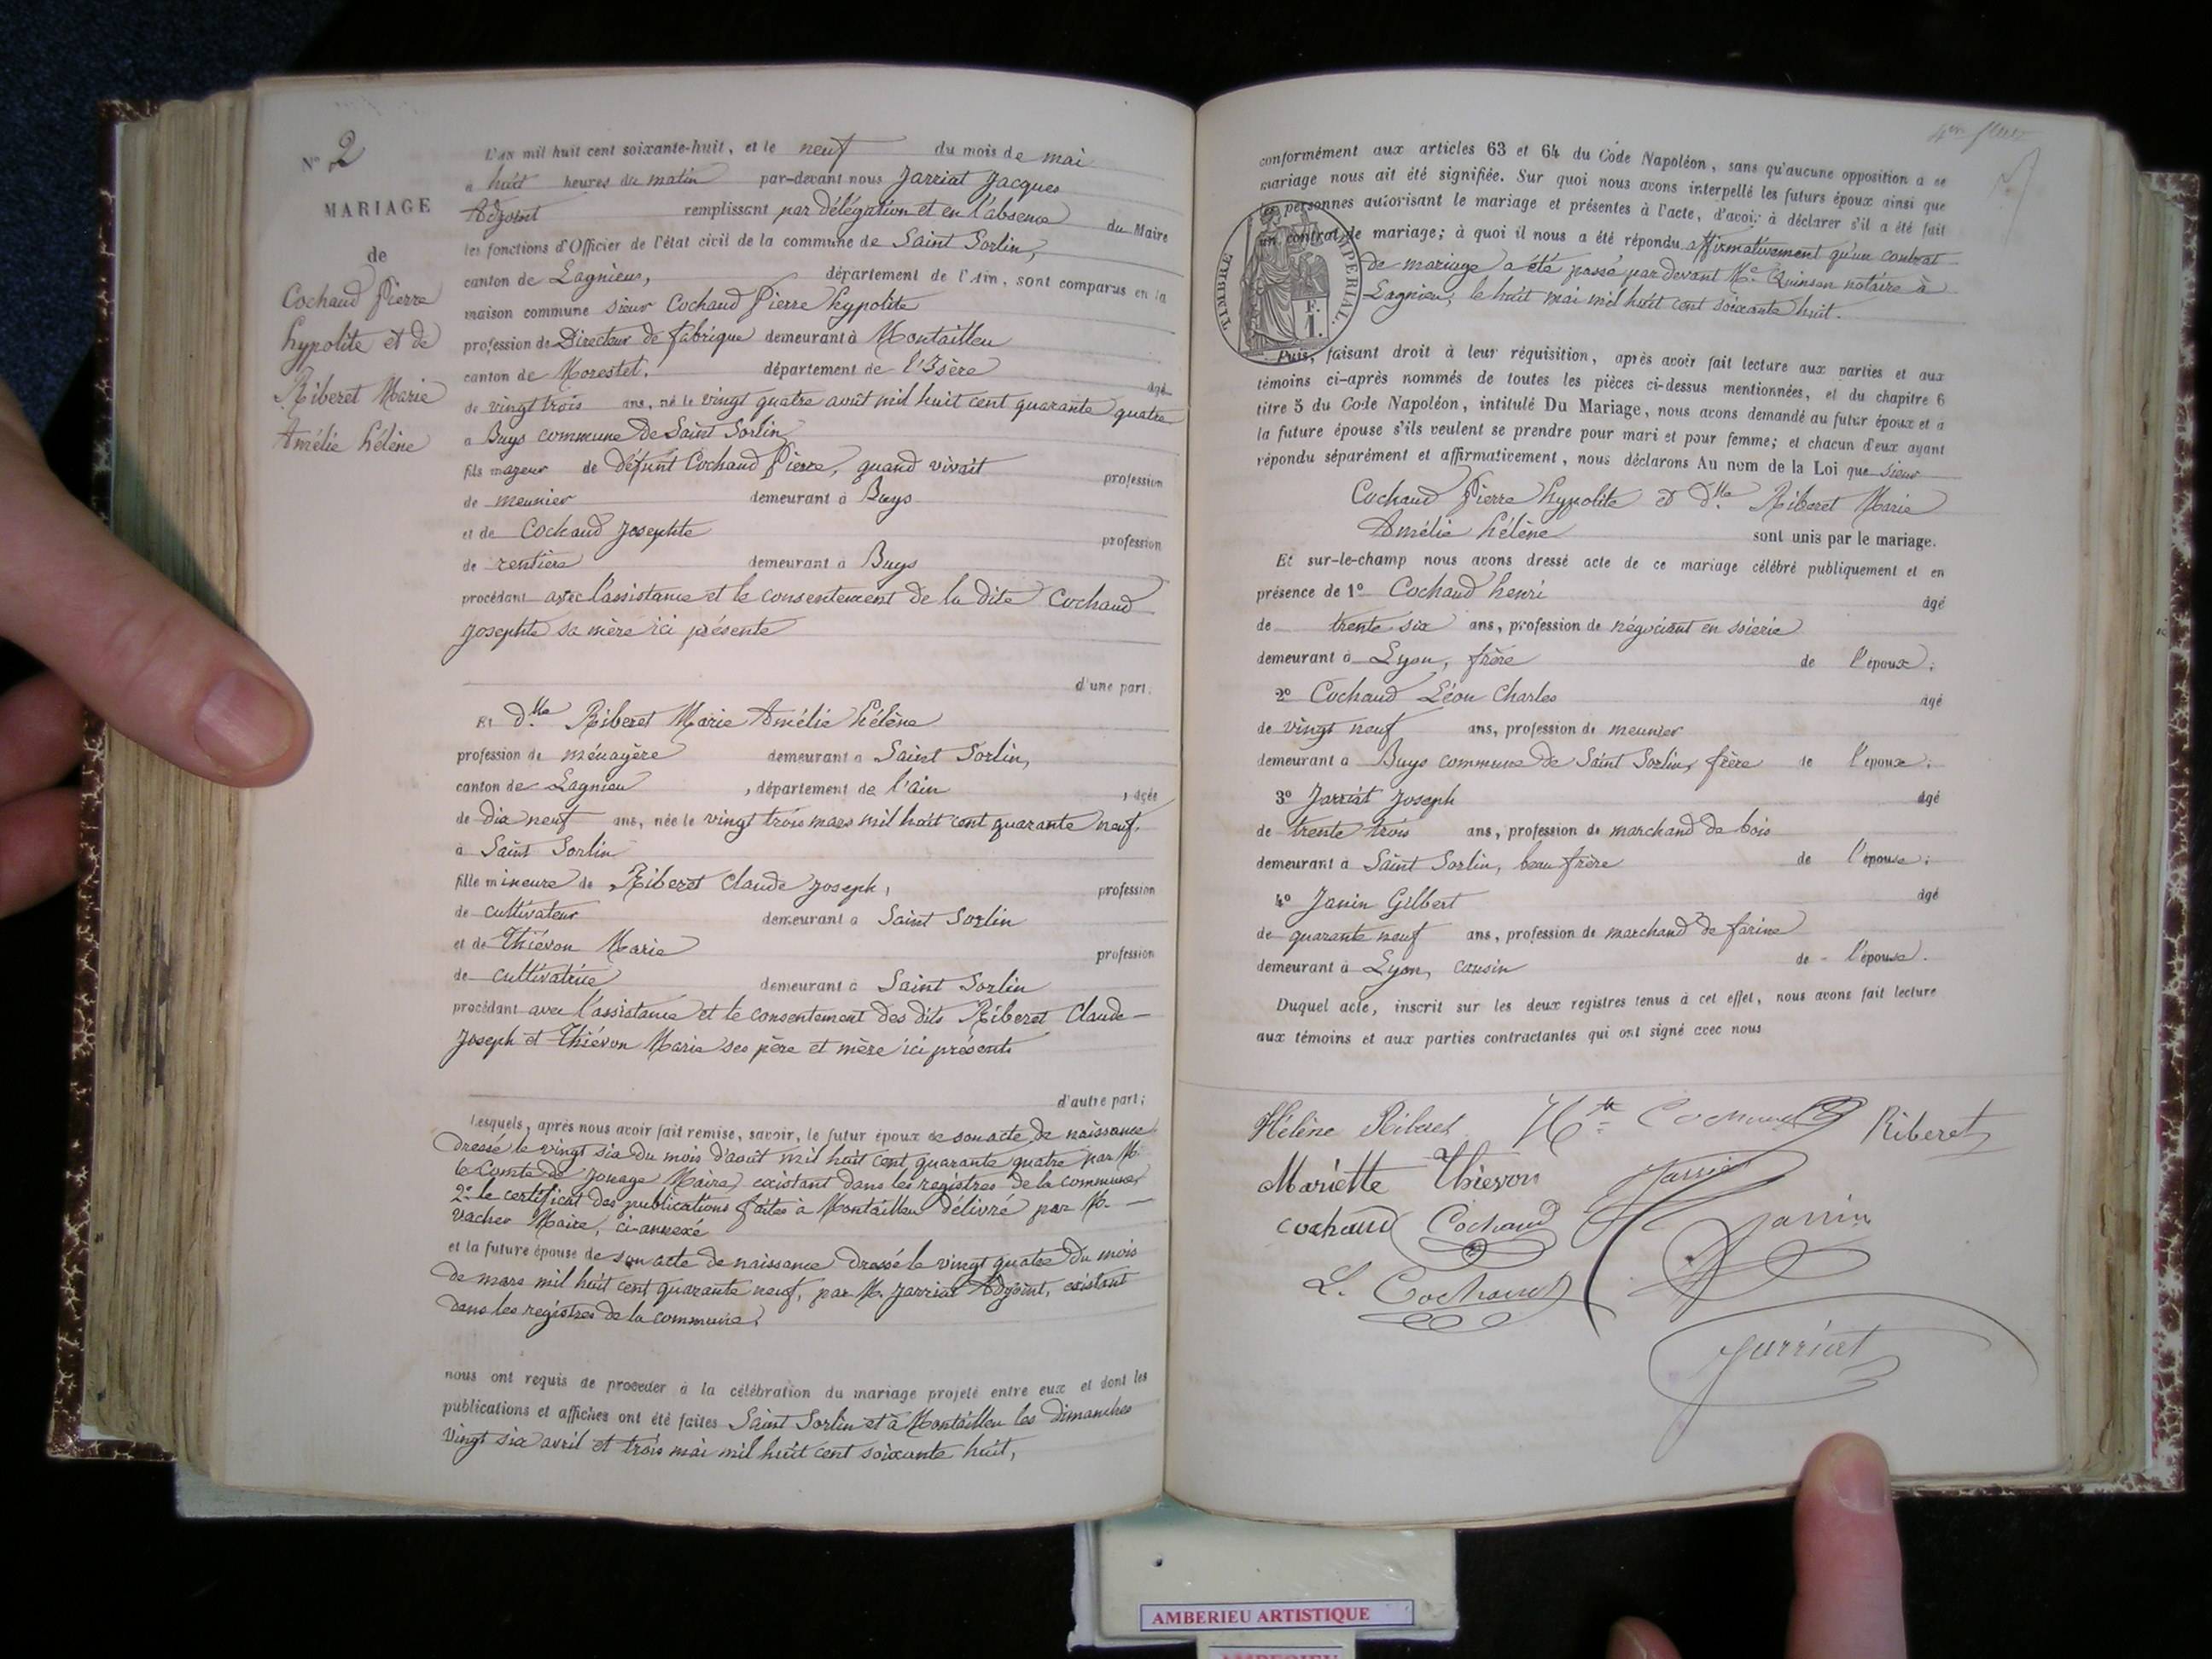 N° 2
MARIAGE
de
Cochaud Pierre
hypolite et de
Riberet Marie
Amélie hélène
L'an mil huit cent soixante-huit, et le neuf du mois de mai
a huit heures du matin par-devant nous Jarriat Jacques
Adjoint remplissant par délégation et en l'absence du Maire
les fonctions d'Officier de l'état civil de la commune de Saint Sorlin,
canton de Lagnieu, département de l'Ain, sont comparus en la
maison commune sieur Cochaud Pierre hypolite
profession de Directeur de fabrique demeurant à Montailleu
canton de Morestel, département de l'Isère agé
de vingt trois ans, né le vingt quatre août mil huit cent quarante quatre
a Buys commune de Saint Sorlin
fils majeur de défunt Cochaud Pierre, quand vivait profession
de meunier demeurant à Buys
et de Cochaud Josephte profession
de rentière demeurant à Buys
procédant avec l'assistance et le consentement de la dite Cochaud
Josephte sa mère ici présente
d'une part;
Et dlle Riberet Marie Amélie hélène
profession de ménagère demeurant a Saint Sorlin,
canton de Lagnieu, département de l'ain, agée
de dix neuf ans, née le vingt trois mars mil huit cent quarante neuf,
à Saint Sorlin
fille mineure de Riberet Claude Joseph, profession
de cultivateur demeurant a Saint Sorlin
et de Thiévon Marie profession
de cultivatrice demeurant à Saint Sorlin
procédant avec l'assistance et le consentement des dits Riberet Claude
Joseph et Thiévon Marie ses père et mère ici présents
d'autre part;
Lesquels, après nous avoir fait remise, savoir, le futur époux de son acte de naissance
dressé le vingt six du mois d'août mil huit cent quarante quatre par M.
le Comte de Jonage Maire existant dans les registres de la commune,
2° le certificat des publications faites à Montailleu délivré par M.
Vacher Maire, ci-annexé
et la future épouse de son acte de naissance dressé le vingt quatre du mois
de mars mil huit cent quarante neuf, par M. Jarriat Adjoint, existant
dans les registres de la commune,
nous ont requis de proceder à la célébration du mariage projeté entre eux et dont les
publications et affiches ont été faites Saint Sorlin et à Montailleu les dimanches
vingt six avril et trois mai mil huit cent soixante huit,
conformément aux articles 63 et 64 du Code Napoléon, sans qu'aucune opposition a ce
mariage nous ait été signifiée. Sur quoi nous avons interpellé les futurs époux ainsi que
les personnes autorisant le mariage et présentes à l'acte, d'avoir à déclarer s'il a été fait
un contrat de mariage; à quoi il nous a été répondu affirmativement qu'un contrat
de mariage a été passé par devant Me. Quinson notaire à
Lagnieu, le huit mai mil huit cent soixante huit.
TIMBRE IMPERIAL.
F.
1.
Puis, faisant droit à leur réquisition, après avoir fait lecture aux parties et aux
témoins ci-après nommés de toutes les pièces ci-dessus mentionnées, et du chapitre 6
titre 5 du Code Napoléon, intitulé Du Mariage, nous avons demandé au futur époux et à
la future épouse s'ils veulent se prendre pour mari et pour femme; et chacun d'eux ayant
répondu séparément et affirmativement, nous déclarons Au nom de la Loi que sieur
Cochaud Pierre hypolite et dlle Riberet Marie
Amélie hélène sont unis par le mariage.
Et sur-le-champ nous avons dressé acte de ce mariage célébré publiquement et en
présence de 1° Cochaud henri âgé
de trente six ans, profession de négociant en soierie
demeurant à Lyon, frère de l'époux;
2° Cochaud Léon Charles agé
de vingt neuf ans, profession de meunier
demeurant a Buys commune de Saint Sorlin, frère de l'époux;
3° Jarriat Joseph âgé
de trente trois ans, profession de marchand de bois
demeurant a Saint Sorlin, beau frère de l'épouse;
4° Janin Gilbert âgé
de quarante neuf ans, profession de marchand de farine
demeurant à Lyon, cousin de l'épouse.
Duquel acte, inscrit sur les deux registres tenus à cet effet, nous avons fait lecture
aux témoins et aux parties contractantes qui ont signé avec nous
Hélène Riberet Hte Cochaud Riberet
Mariette Thievon Jarriat
Cochaud Cochaud Janin
L. Cochaud
Jarriat
AMBERIEU ARTISTIQUE
AMBERIEU